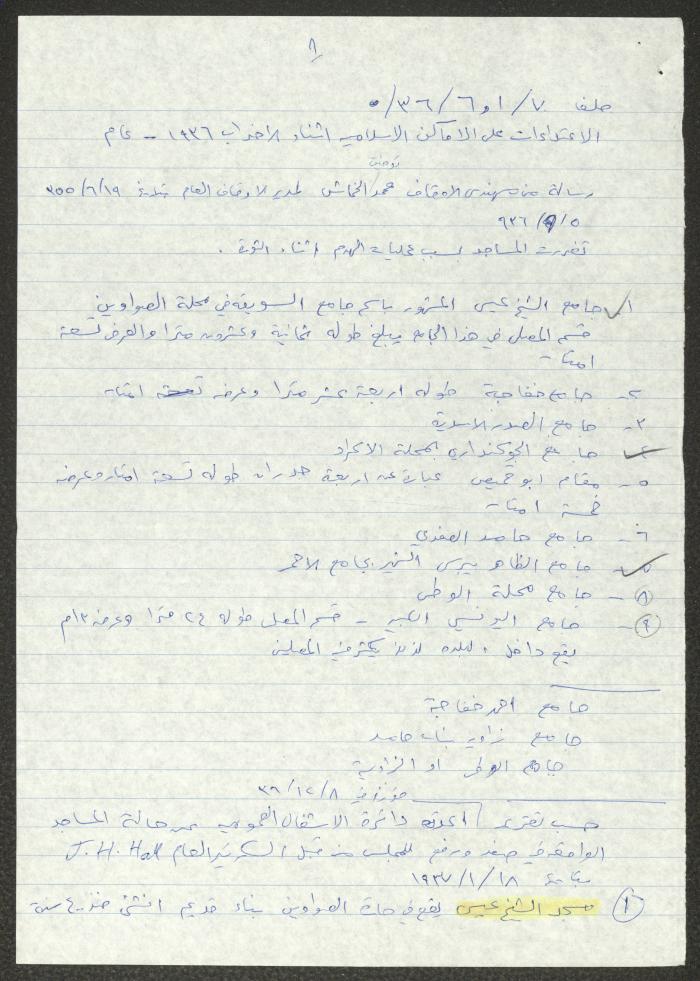 ٨
ملف ٧/ ١ و ٦ /٣٦/٥
الاعتداءات على الاماكن الاسلامية اثناء الاضراب ١٩٣٦ – عام
توفيق
رسالة من مهندس الاوقاف محمد الخماش لمدير الاوقاف العام بتاريخ ١٩/٦/٣٥٥
٥/٩/٩٣٦
تضررت المساجد بسبب عمليات الهدم اثناء الثورة .
١ جامع الشيخ عيسى المشهور باسم جامع السويقة في محلة الصواوين
قسم المصلى في هذا الجامع يبلغ طوله ثمانية وعشرون مترا والعرض تسعة
امتار
٢- جامع خفاجية طوله اربعة عشر مترا وعرضه تسعة امتار
٣- جامع الصدر الاسدية
٤- جامع الجوكنداري بمحلة الاكراد
٥- مقام ابو قميص عبارة عن اربعة جدران طوله تسعة امتار وعرضه
خمسة امتار
٦- جامع حامد الصفدي
٧- جامع الظاهر بيبرس الشهير بجامع الاحمر
٨- جامع محلة الوطى
٩- جامع اليونسي الكبير – قسم المصلى طوله ٢٤ مترا وعرضه ١٣م
يقع داخل البلده لذلك يكثر فيه المصلين
جامع احمد خفاجة
جامع زاوية بنات حامد
جامع الوطى او الزاوية
مؤرخ في ٨/١٢/٣٦
حسب تقرير اعدته دائرة الاشغال العمومية عن حالة المساجد
الواقعة في صفد ورفع للمجلس من قبل السكرتير العام J. H. Hall
بتاريخ ١٨/١/١٩٣٧
١ مسجد الشيخ عيسى يقع في حارة الصواوين بناء قديم انشئ منذ سنة